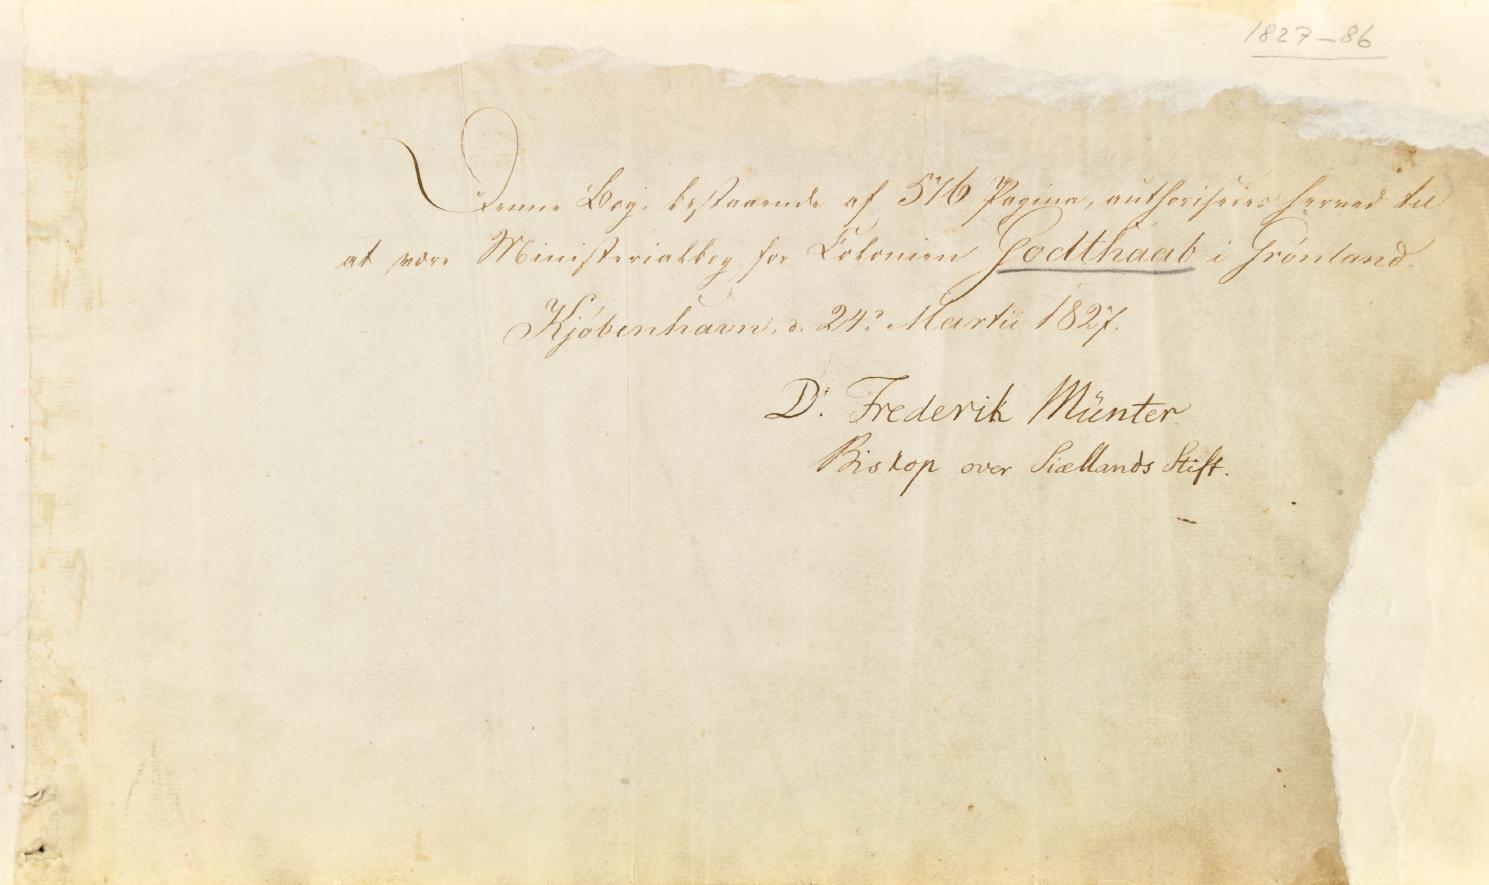 1827-86
Denne Bog, bestaaende af 576 Pagina, authoriseres herved til
at være Ministerialbog for Colonien Godthaab i Grönland.
Kjöbenhavn, d. 24de Martii 1827.
Dr. Frederik Münter
Biskop over Siællands Stift.